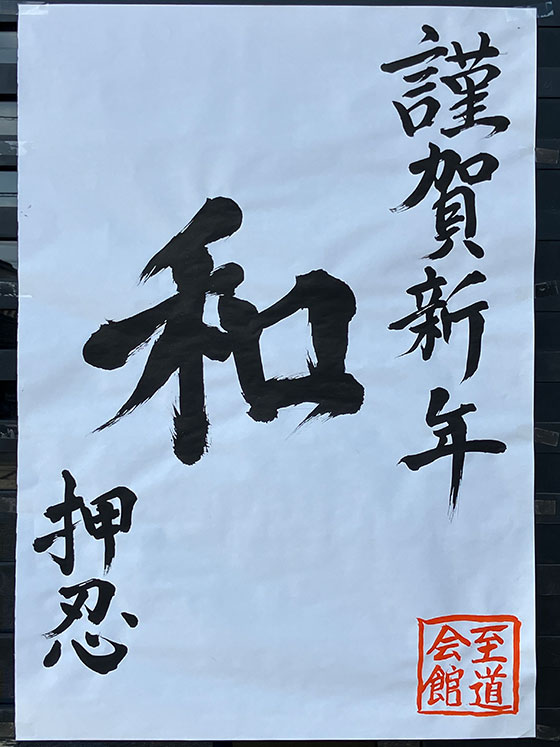 謹賀新年
和
押忍
至道
会館